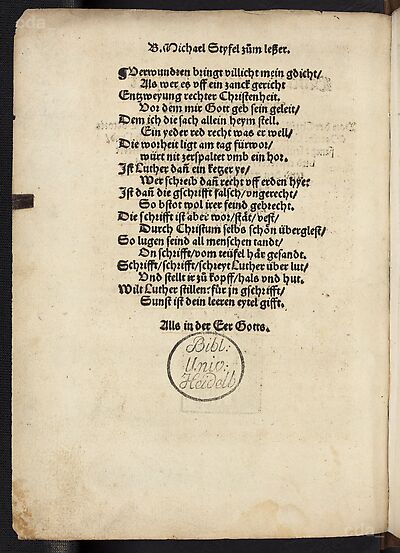 B. Michael Styfel zům leßer.
Verwundren bringt villicht mein gdicht/
Als wer es vff ein zanck gericht
Entzweyung rechter Christenheit.
Vor dem mir Gott geb sein geleit/
Dem ich die sach allein heym stell.
Ein yeder red recht was er well/
Die worheit ligt am tag fürwor/
würt nit zerspalter vmb ein hor.
Ist Luther dañ ein ketzer ye/
Wer schreib dañ recht vff erden hye?
Ist dañ die gschrifft falsch/vngerecht/
So bstot wol irer feind gebrecht.
Die schrifft ist aber wor/stät/vest/
Durch Christum selbs schön überglest/
So lugen seind all menschen tandt/
On schrifft/vom teüfel här gesandt.
Schrifft/schrifft/schreyt Luther über lut/
Vnd stellt ir zů kopff/hals vnd hut.
Wilt Luther stillen: für jn gschrifft/
Sunst ist dein leeren eytel gifft.
Alls in der Eer Gotts.
Bibl:
Univ:
Heidelb